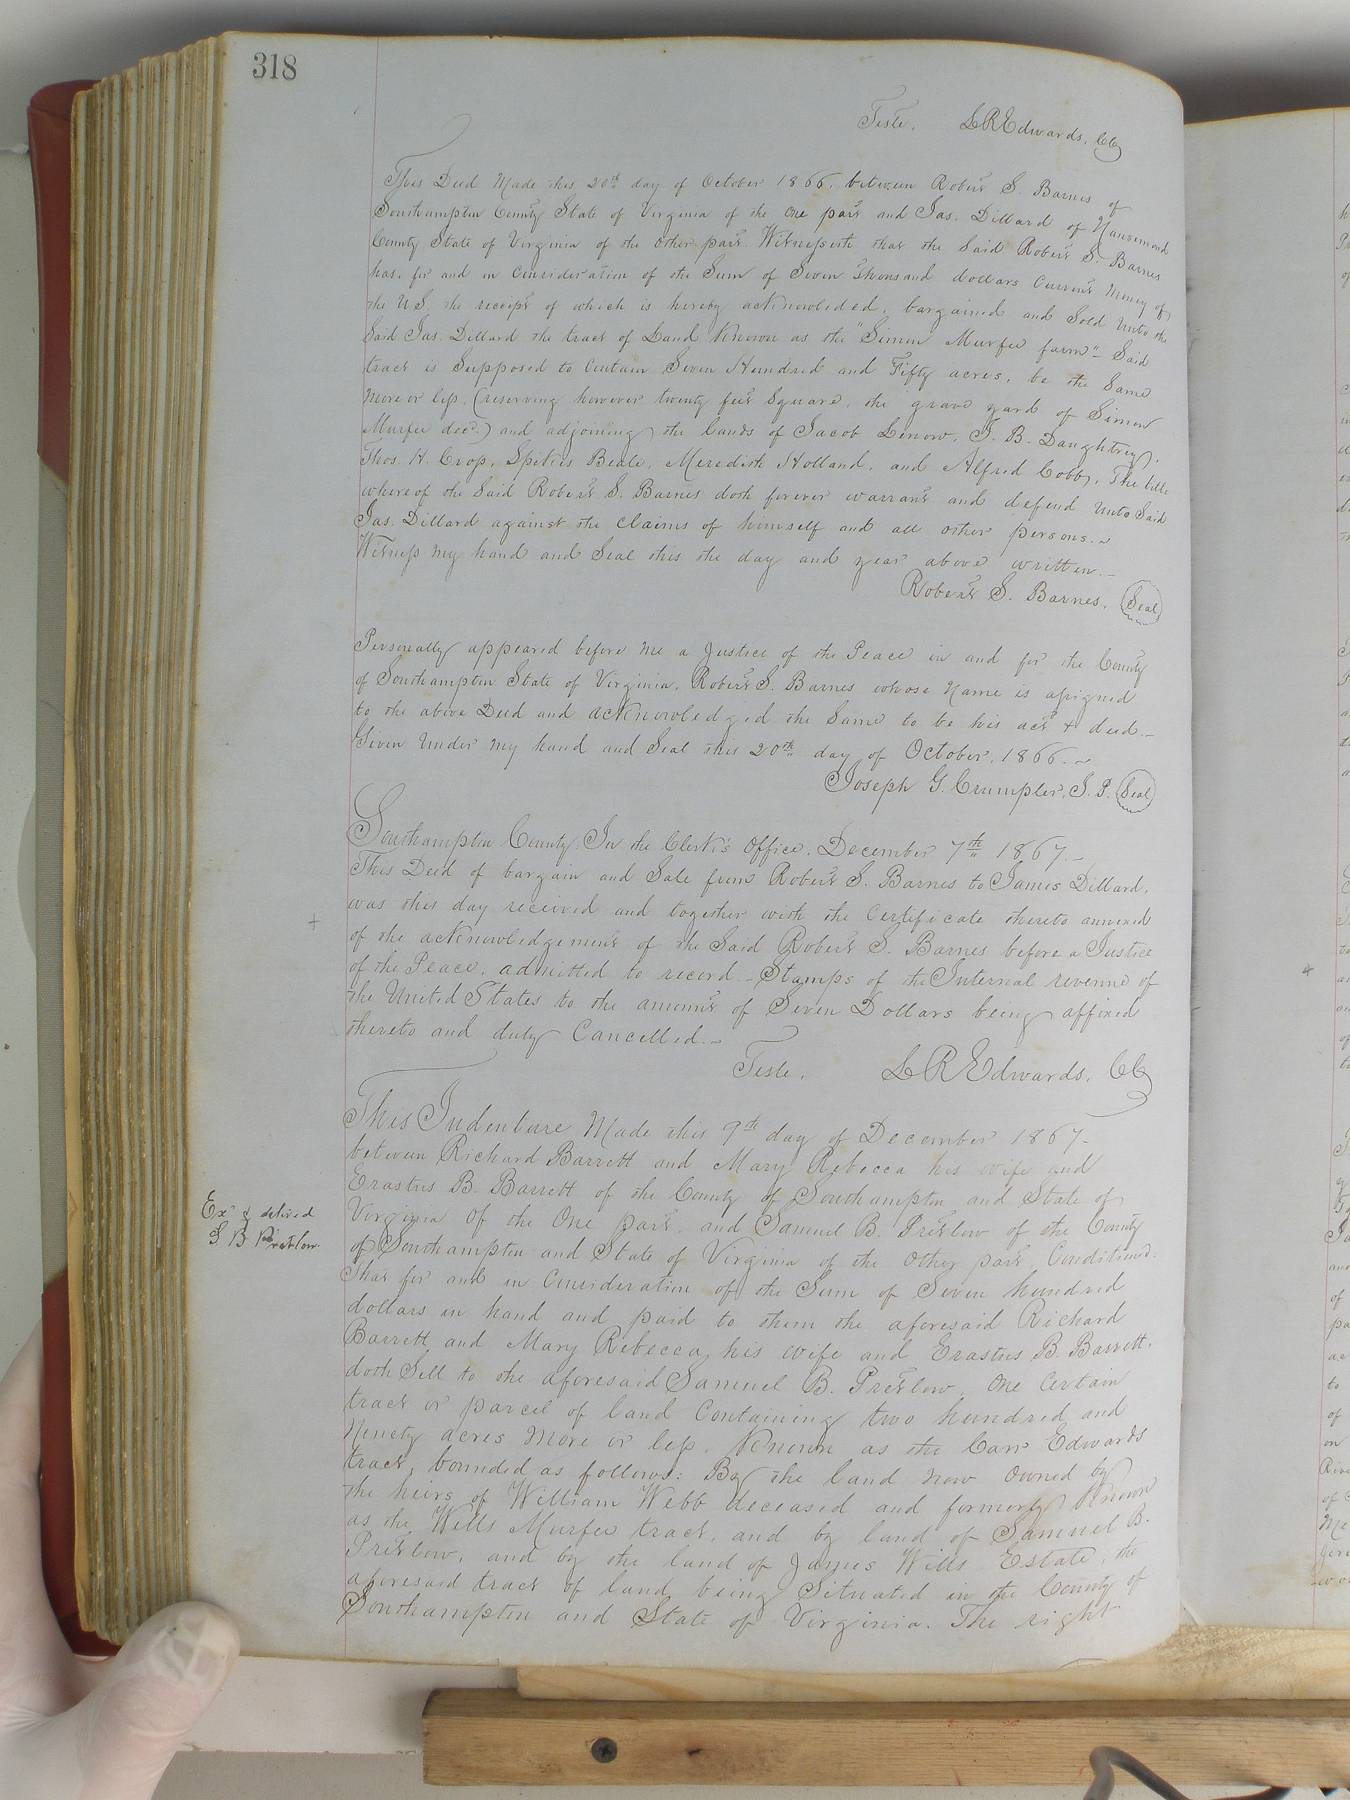 318
Teste. L R Edwards, CC
This Deed Made this 20th day of October 1866, between Robert S. Barnes of
Southampton County State of Virginia of the one part and Jas. Dillard of Nansemond
County State of Virginia of the other part Witnesseth that the Said Robert S. Barnes
has, for and in Consideration of the Sum of Seven thousand dollars Current Money of
the U.S. the receipt of which is hereby acknowleded, bargained and Sold Unto the
Said Jas. Dillard the tract of Land Known as the "Simon Murfee farm" Said
tract is Supposed to Contain Seven Hundred and Fifty acres, be the Same
More or less, (reserving however twenty feet Square, the grave yard of Simon
Murfee decd.) and adjoining the lands of Jacob Lenow, J. B. Daughtrey,
Thos. H. Crop, Spitus Beale, Meredith Holland, and Alfred Cobb, The title
whereof the Said Robert S. Barnes doth forever warrant and defend Unto Said
Jas. Dillard against the claims of himself and all other persons.
Witness My hand and Seal this the day and year above written.
Robert S. Barnes, (Seal)
Personally appeared before Me a Justice of the Peace in and for the County
of Southampton State of Virginia, Robert S. Barnes whose Name is assigned
to the above Deed and acknowledged the Same to be his act & deed.
Given Under My hand and Seal this 20th day of October, 1866.
Joseph G. Crumpler, J. P. (Seal)
Southampton County. In the Clerk's Office, December 7th 1867.
This Deed of bargain and Sale from Robert S. Barnes to James Dillard,
was this day received and together with the Certificate thereto annexed
of the acknowledgement of the Said Robert S. Barnes before a Justice
of the Peace, admitted to record - Stamps of the Internal revenue of
the United States to the amount of Seven Dollars being affixed
thereto and duly Cancelled.
Teste, L R Edwards, CC
This Indenture Made this 9th day of December 1867-
between Richard Barrett and Mary Rebecca his wife and
Erastus B. Barrett of the County of Southampton and State of
Virginia Of the One part, and Samuel B. Pretlow of the County
of Southampton and State of Virginia of the Other part, Conditioned:
That for and in Consideration of the Sum of Seven hundred
dollars in hand and paid to them the aforesaid Richard
Barrett and Mary Rebecca, his wife and Erastus B. Barrett,
doth Sell to the aforesaid Samuel B. Pretlow, One Certain
tract or parcel of land Containing two hundred and
Ninety acres More or less, Known as the Carr Edwards
tract, bounded as follows: By the land now owned by
the heirs of William Webb deceased and formerly Known
as the Wells Murfee tract, and by land of Samuel B.
Pretlow, and by the land of James Wills Estate, the
aforesaid tract of land being Situated in the County of
Southampton and State of Virginia. The right
Exd & delivd
S B Pretlow.